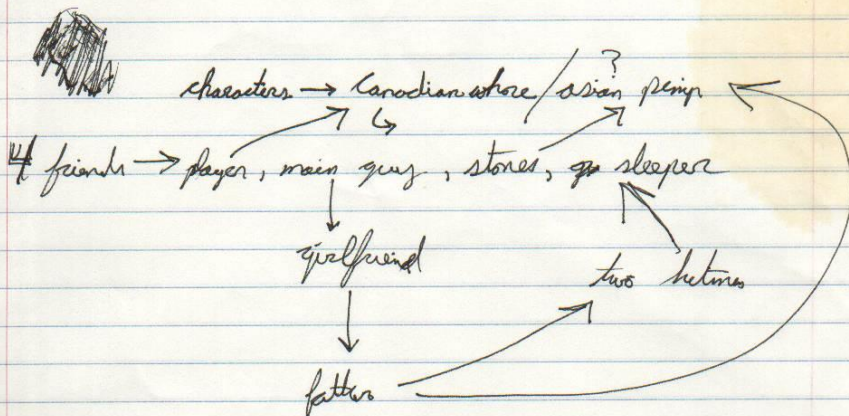 ?
characters → Canadian whore / asian pimp
4 friends → player, main guy, stoner, sleeper
girlfriend
two hitmen
father